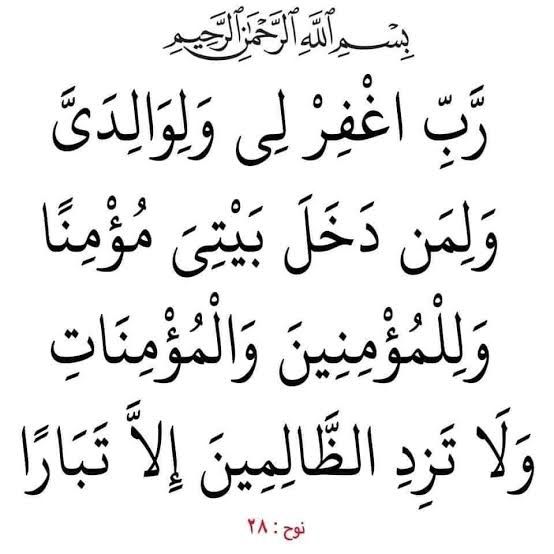 بِسْمِ اللَّهِ الرَّحْمَٰنِ الرَّحِيمِ
رَّبِّ اغْفِرْ لِى وَلِوَالِدَىَّ
وَلِمَن دَخَلَ بَيْتِىَ مُؤْمِنًا
وَلِلْمُؤْمِنِينَ وَالْمُؤْمِنَاتِ
وَلَا تَزِدِ الظَّالِمِينَ إِلاَّ تَبَارًا
نوح : ٢٨